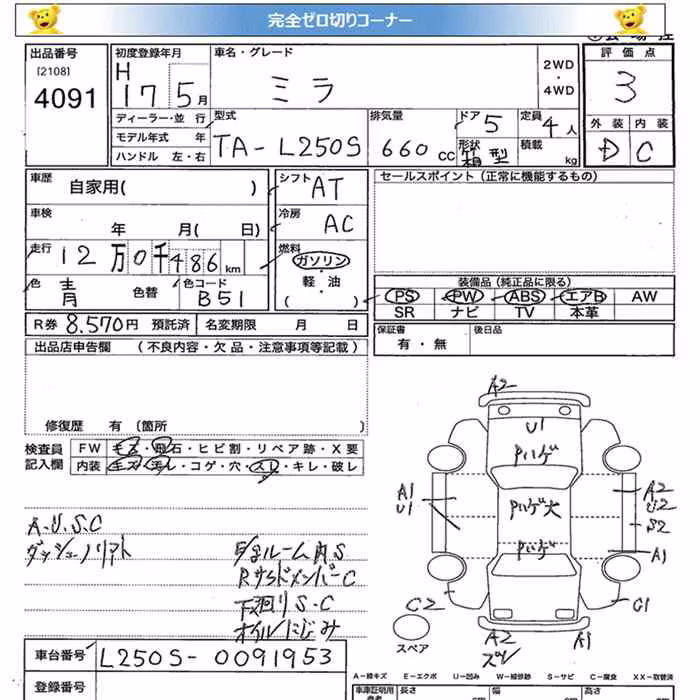 完全ゼロ切りコーナー
出品番号
[2108]
4091
初度登録年月
H 17 5月
車名・グレード
ミラ
2WD
・
4WD
評価点
3
外装 内装
D C
ディーラー・並 行
モデル年式 年
ハンドル 左・右
型式
TA-L250S
排気量
660 cc
ドア 5
形状 箱型
定員 4人
積載 kg
車歴 自家用( )
車検 年 月( 日)
走行 12万0千486km
色 青 色替
色コード B51
シフト AT
冷房 AC
燃料
ガソリン
軽・油
( )
セールスポイント(正常に機能するもの)
装備品(純正品に限る)
PS PW ABS エアB AW
SR ナビ TV 本革
R券 8.570円 預託済 名変期限 月 日
保証書
有・無
後日品
出品店申告欄 (不良内容・欠品・注意事項等記載)
修復歴 有〔箇所 〕
検査員
記入欄
FW モス・飛石・ヒビ割・リペア跡・X要
内装 モズ・汚レ・コゲ・穴・スレ・キレ・破レ
A.U.S.C
ダッシュノリアト
ルーム内S
RサイドメンバーC
下廻りS・C
オイルにじみ
車台番号 L250S-0091953
登録番号
A2
U1
Pハゲ
Pハゲ大
Pハゲ
A1
U1
A2
U2
S2
A1
C2
C1
A2
A1
スペア
A－線キズ E－エクボ U－凹み W－補修跡 S－サビ C－腐食 XX－取替済
車庫証明用 長さ 幅 高さ